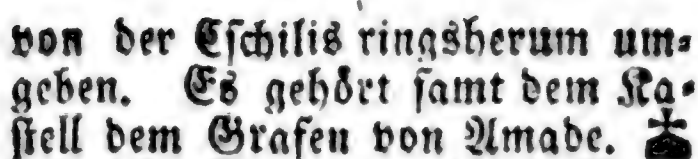 von der Tſchilis ringsherum um⸗
geben. Es gehört ſamt dem Ka⸗
ſtell dem Grafen von Amade.